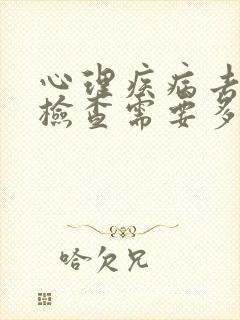 心理疾病去
檢查需要多
哈欠兄